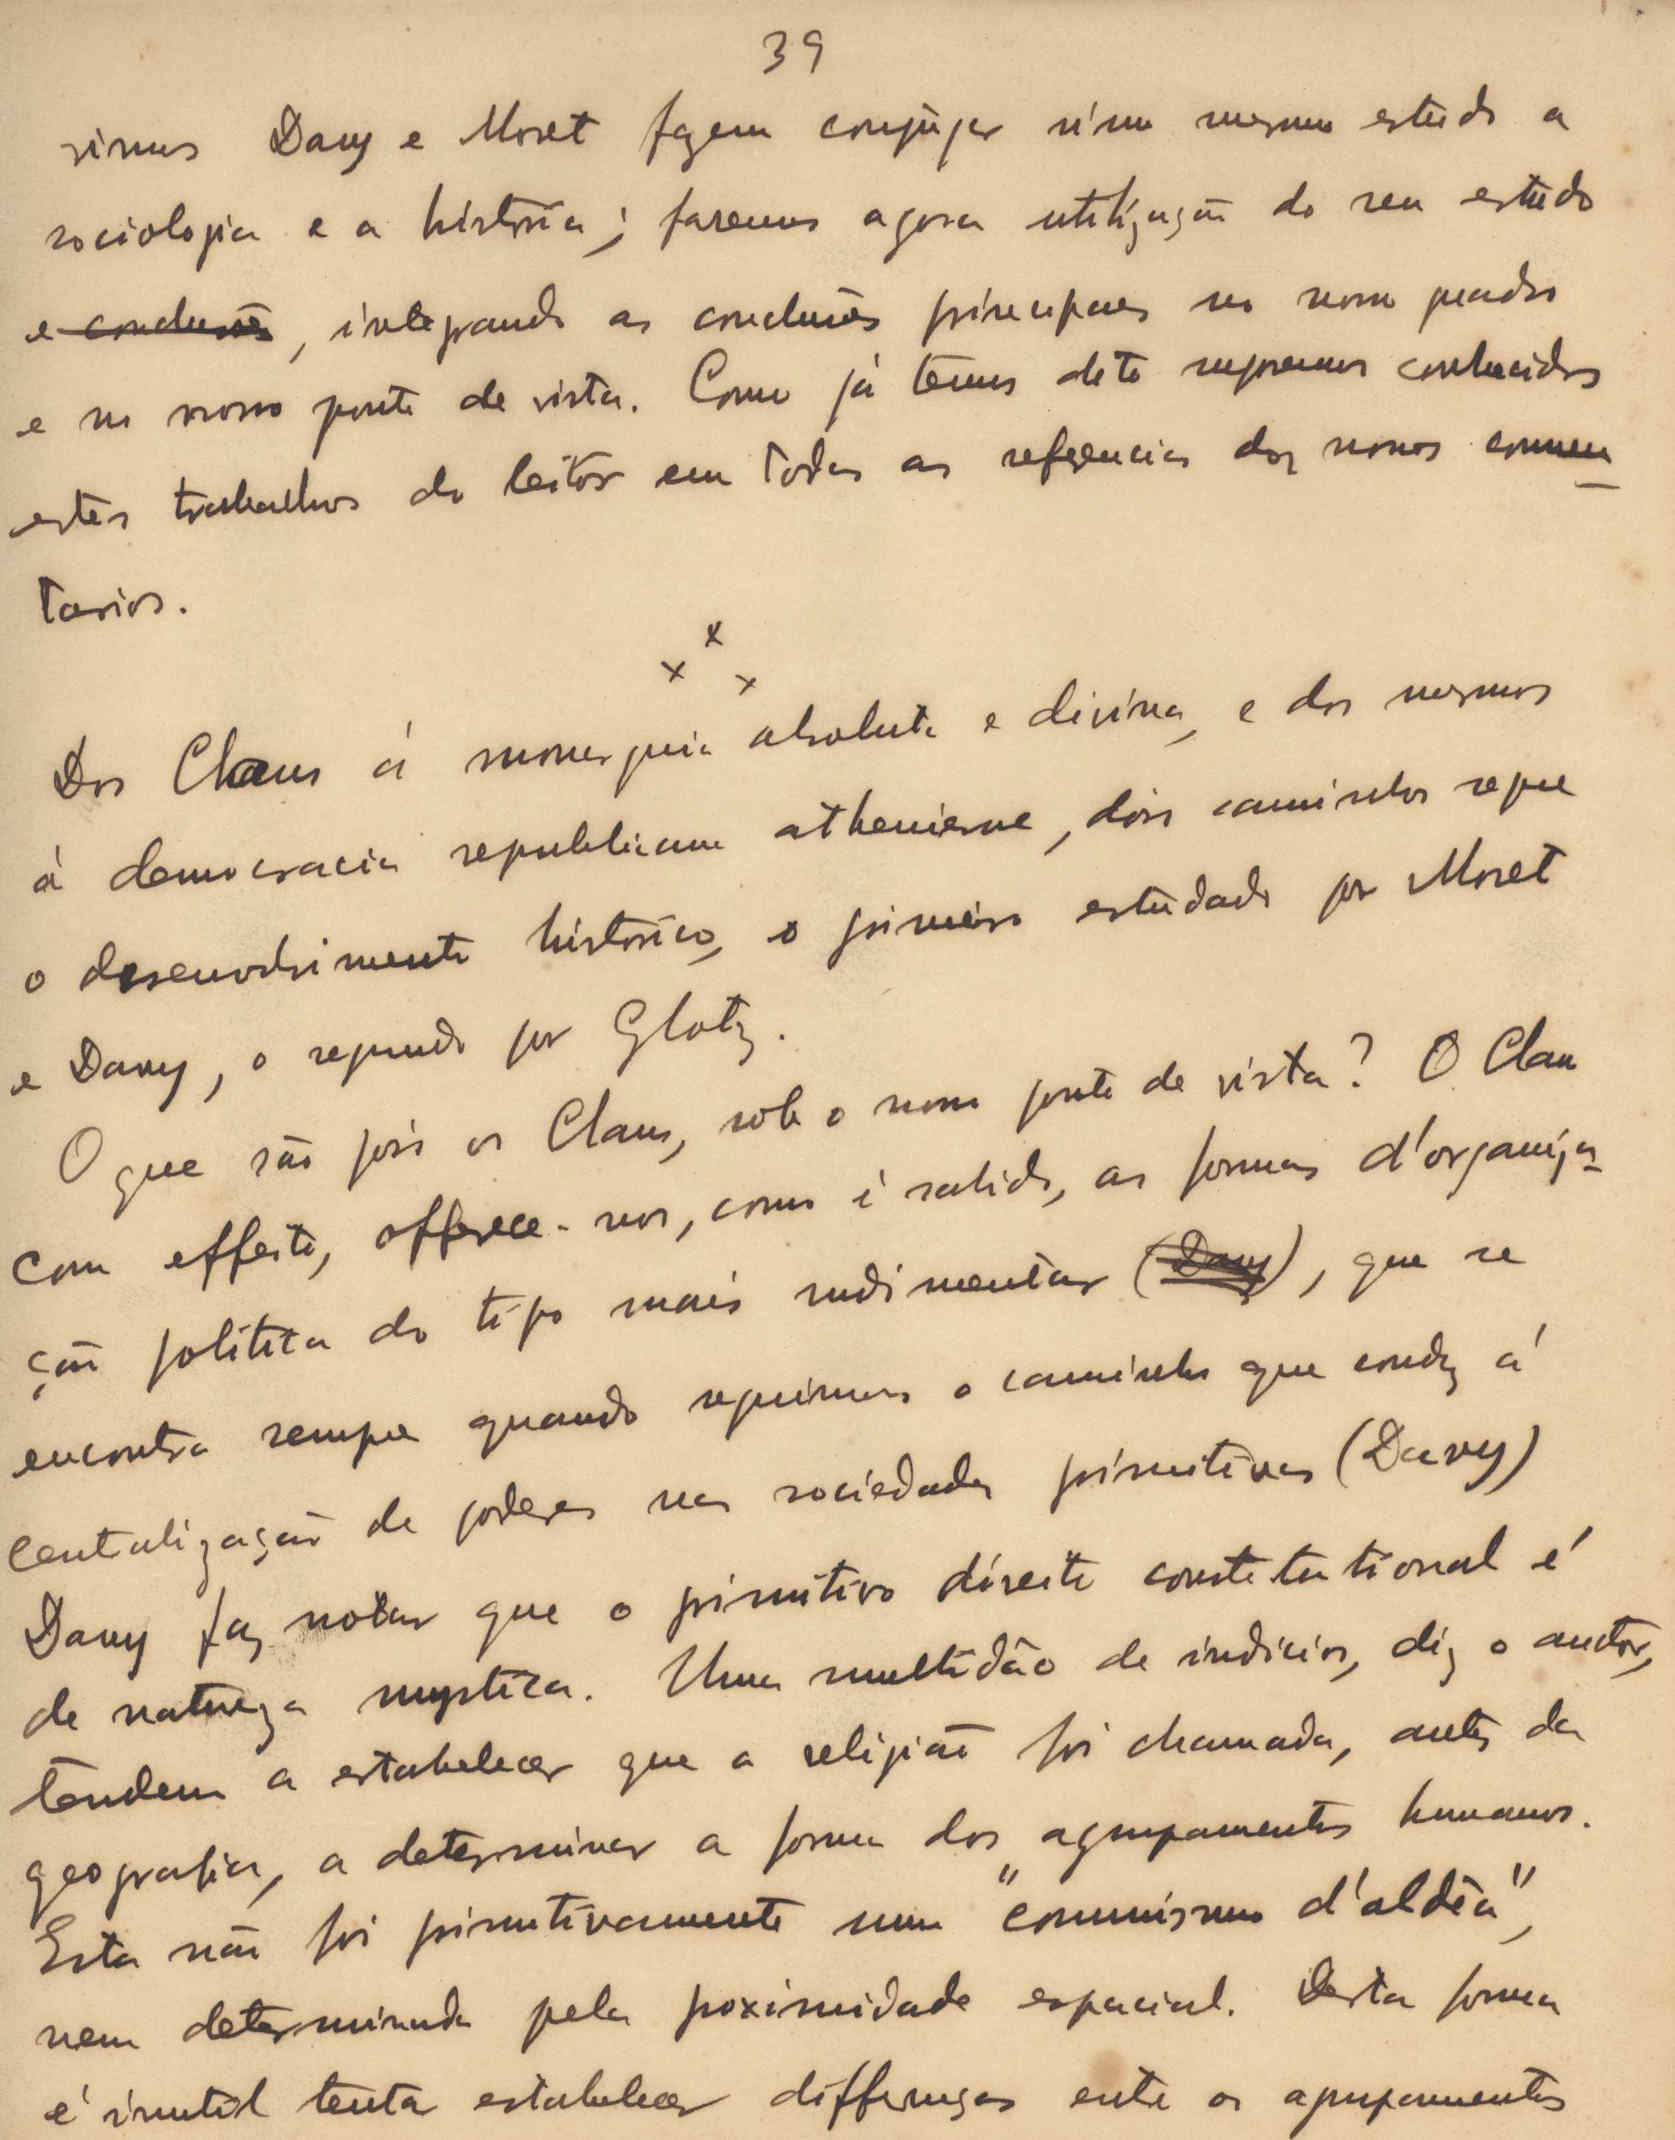 39
simus Davy e Moret fazem conjugar n'um mesmo estudo a
sociologia e a história; faremos agora utilização do seu estudo
e conclusões, integrando as conclusões principaes no nosso quadro
e no nosso ponto de vista. Como já temos dito supomos conhecidos
estes trabalhos do leitor em todas as referencias dos nossos commen
tarios.
x x x
Dos Clans á monarquia absoluta e divina, e dos mesmos
á democracia republicana atheniense, dois caminhos segue
o desenvolvimento historico, o primeiro estudado por Moret
e Davy, o segundo por Glotz.
O que são pois os Clans, sob o nosso ponto de vista? O Clan
com effeito, offerece-nos, como é sabido, as formas d'organiza-
ção politica do tipo mais rudimentar (Davy), que se
encontra sempre quando seguimos o caminho que conduz á
centralização de poderes nas sociedades primitivas (Davy)
Davy faz notar que o primitivo direito constitutional é
de natureza mystica. Uma multidão de indicios, diz o auctor,
tendem a estabelecer que a religião foi chamada, antes da
geografia, a determinar a forma dos agrupamentos humanos.
Esta não foi primitivamente um "communismo d'aldêa",
nem determinada pela proximidade espacial. Desta forma
é inutil tentar estabelecer differenças entre os agrupamentos